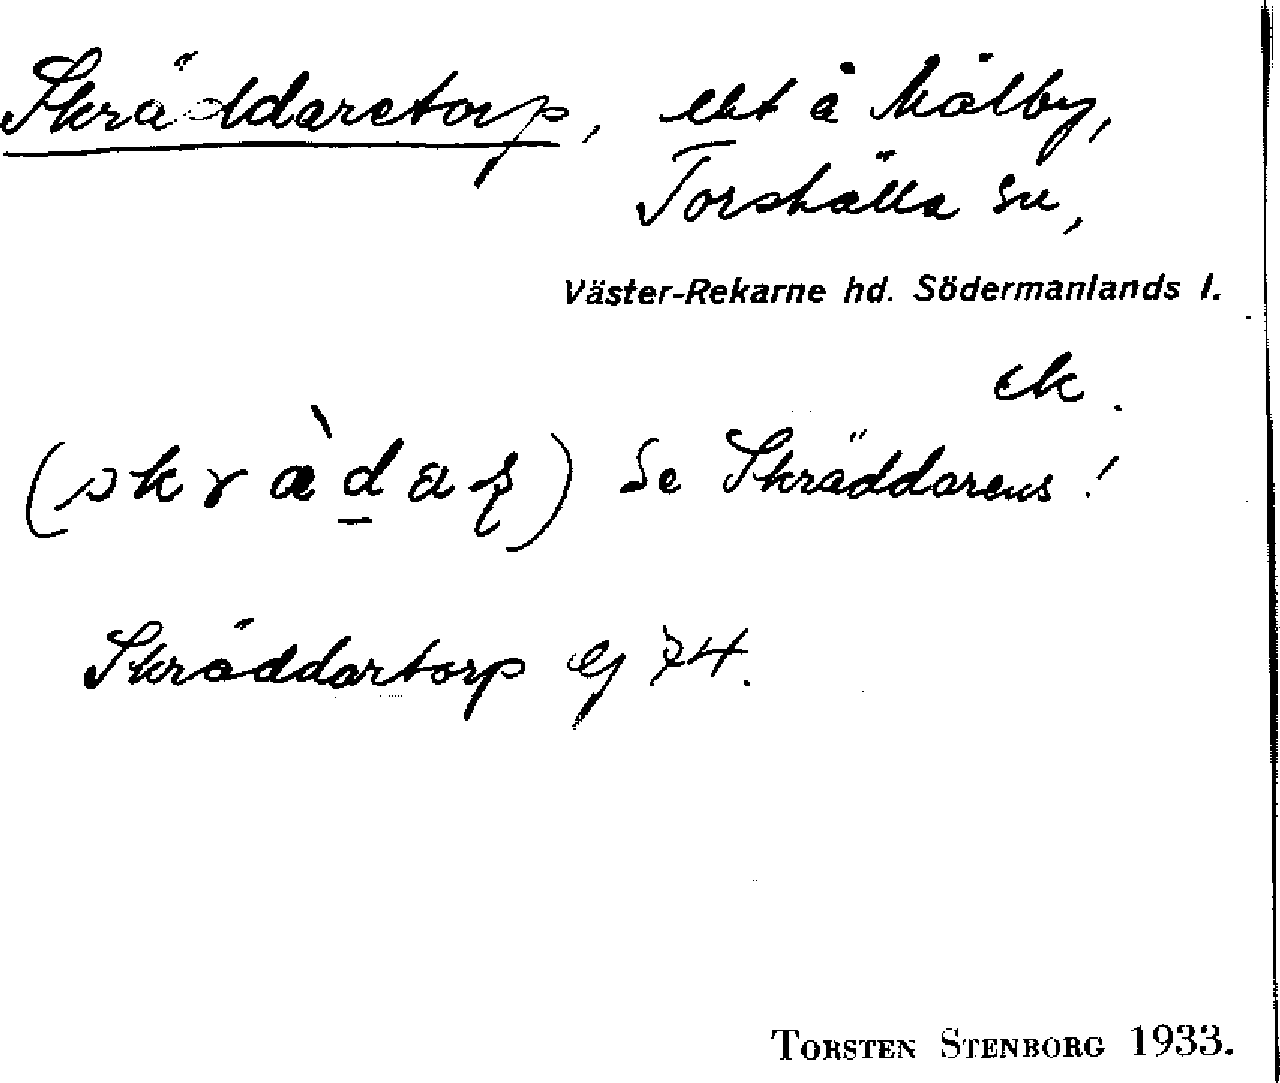 Skräddaretorp, ebt å Mälby,
Torshälla sn,
Väster-Rekarne hd. Södermanlands l.
ek.
Se Skräddarens!
Skräddartorp EJ 74.
TORSTEN STENBORG 1933.